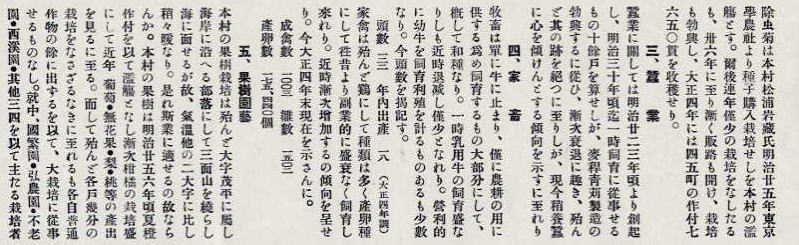 除虫菊は本村松浦岩藏氏明治廿五年東京
學農社より種子購入栽培せしを本村の濫
觴とす。爾後連年僅少の栽培をなしたる
も、卅六年に至り漸く販路も開け、栽培
も勃興し、大正四年には四五町の作付七
六五〇貫を收穫せり。
三、蠶業
蠶業に關しては明治廿二三年頃より創起
し、明治三十年頃迄一時飼育に從事せる
もの十餘戸を算せしが、麥稈靑莿製造の
勃興するに從ひ、漸次衰退に趣き、殆ん
ど其の跡を絕つに至りしが、現今稍養蠶
に心を傾けんとする傾向を示すに至れり
四、家畜
牧畜は單に牛に止まり、僅に農耕の用に
供する爲め飼育するもの大部分にして、
槪して和種なり。一時乳用牛の飼育盛な
りしも近時退减し僅少となれり。營利的
に幼牛を飼育利殖を計るものあるも少數
なり。今頭數を揭記す。
頭數 二三 年內出產 一八 (大正四年調)
家禽は殆んど鷄にして種類は多く產卵種
にして往昔より副業的に盛衰なく飼育し
來れり。近時漸次增加するの傾向を呈せ
り。今大正四年末現在を示さんに。
成禽數 一〇〇三 雛數 一五〇
產卵數 一七五、四四〇個
五、果樹園藝
本村の果樹栽培は殆んど大字茂平に屬し
海岸に沿へる部落にして三面山を繞らし
海に面せるが故、氣溫他の二大字に比し
稍々暖なり。是れ斯業に適せるの故なら
んか。本村の果樹は明治廿五六年頃夏橙
作付を以て濫觴となし漸次柑橘の栽培盛
にして近年 葡萄・無花果・梨・桃等の產出
を見るに至る。而して殆んど各戸幾分の
栽培をなさざるなきに至れるも各自普通
作物の餘に出するを以て、大栽培に從事
せるものなし。就中、國繁園・弘農園・不老
園・西溪園・其他三四を以て主たる栽培者